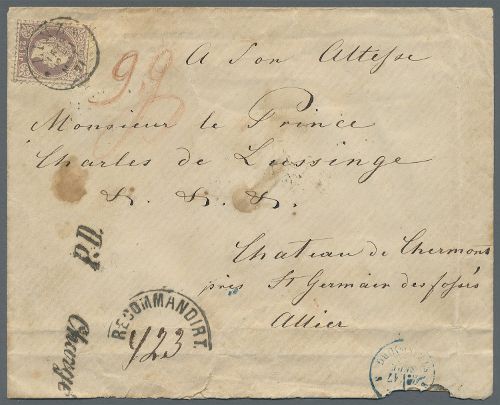 9.9
A Son Altesse
Monsieur le Prince
Charles de Lussinge
&. &. &.
Chateau de Chermont
près St Germain des fossés
Allier
P.D.
Chargé
RECOMMANDIRT.
423